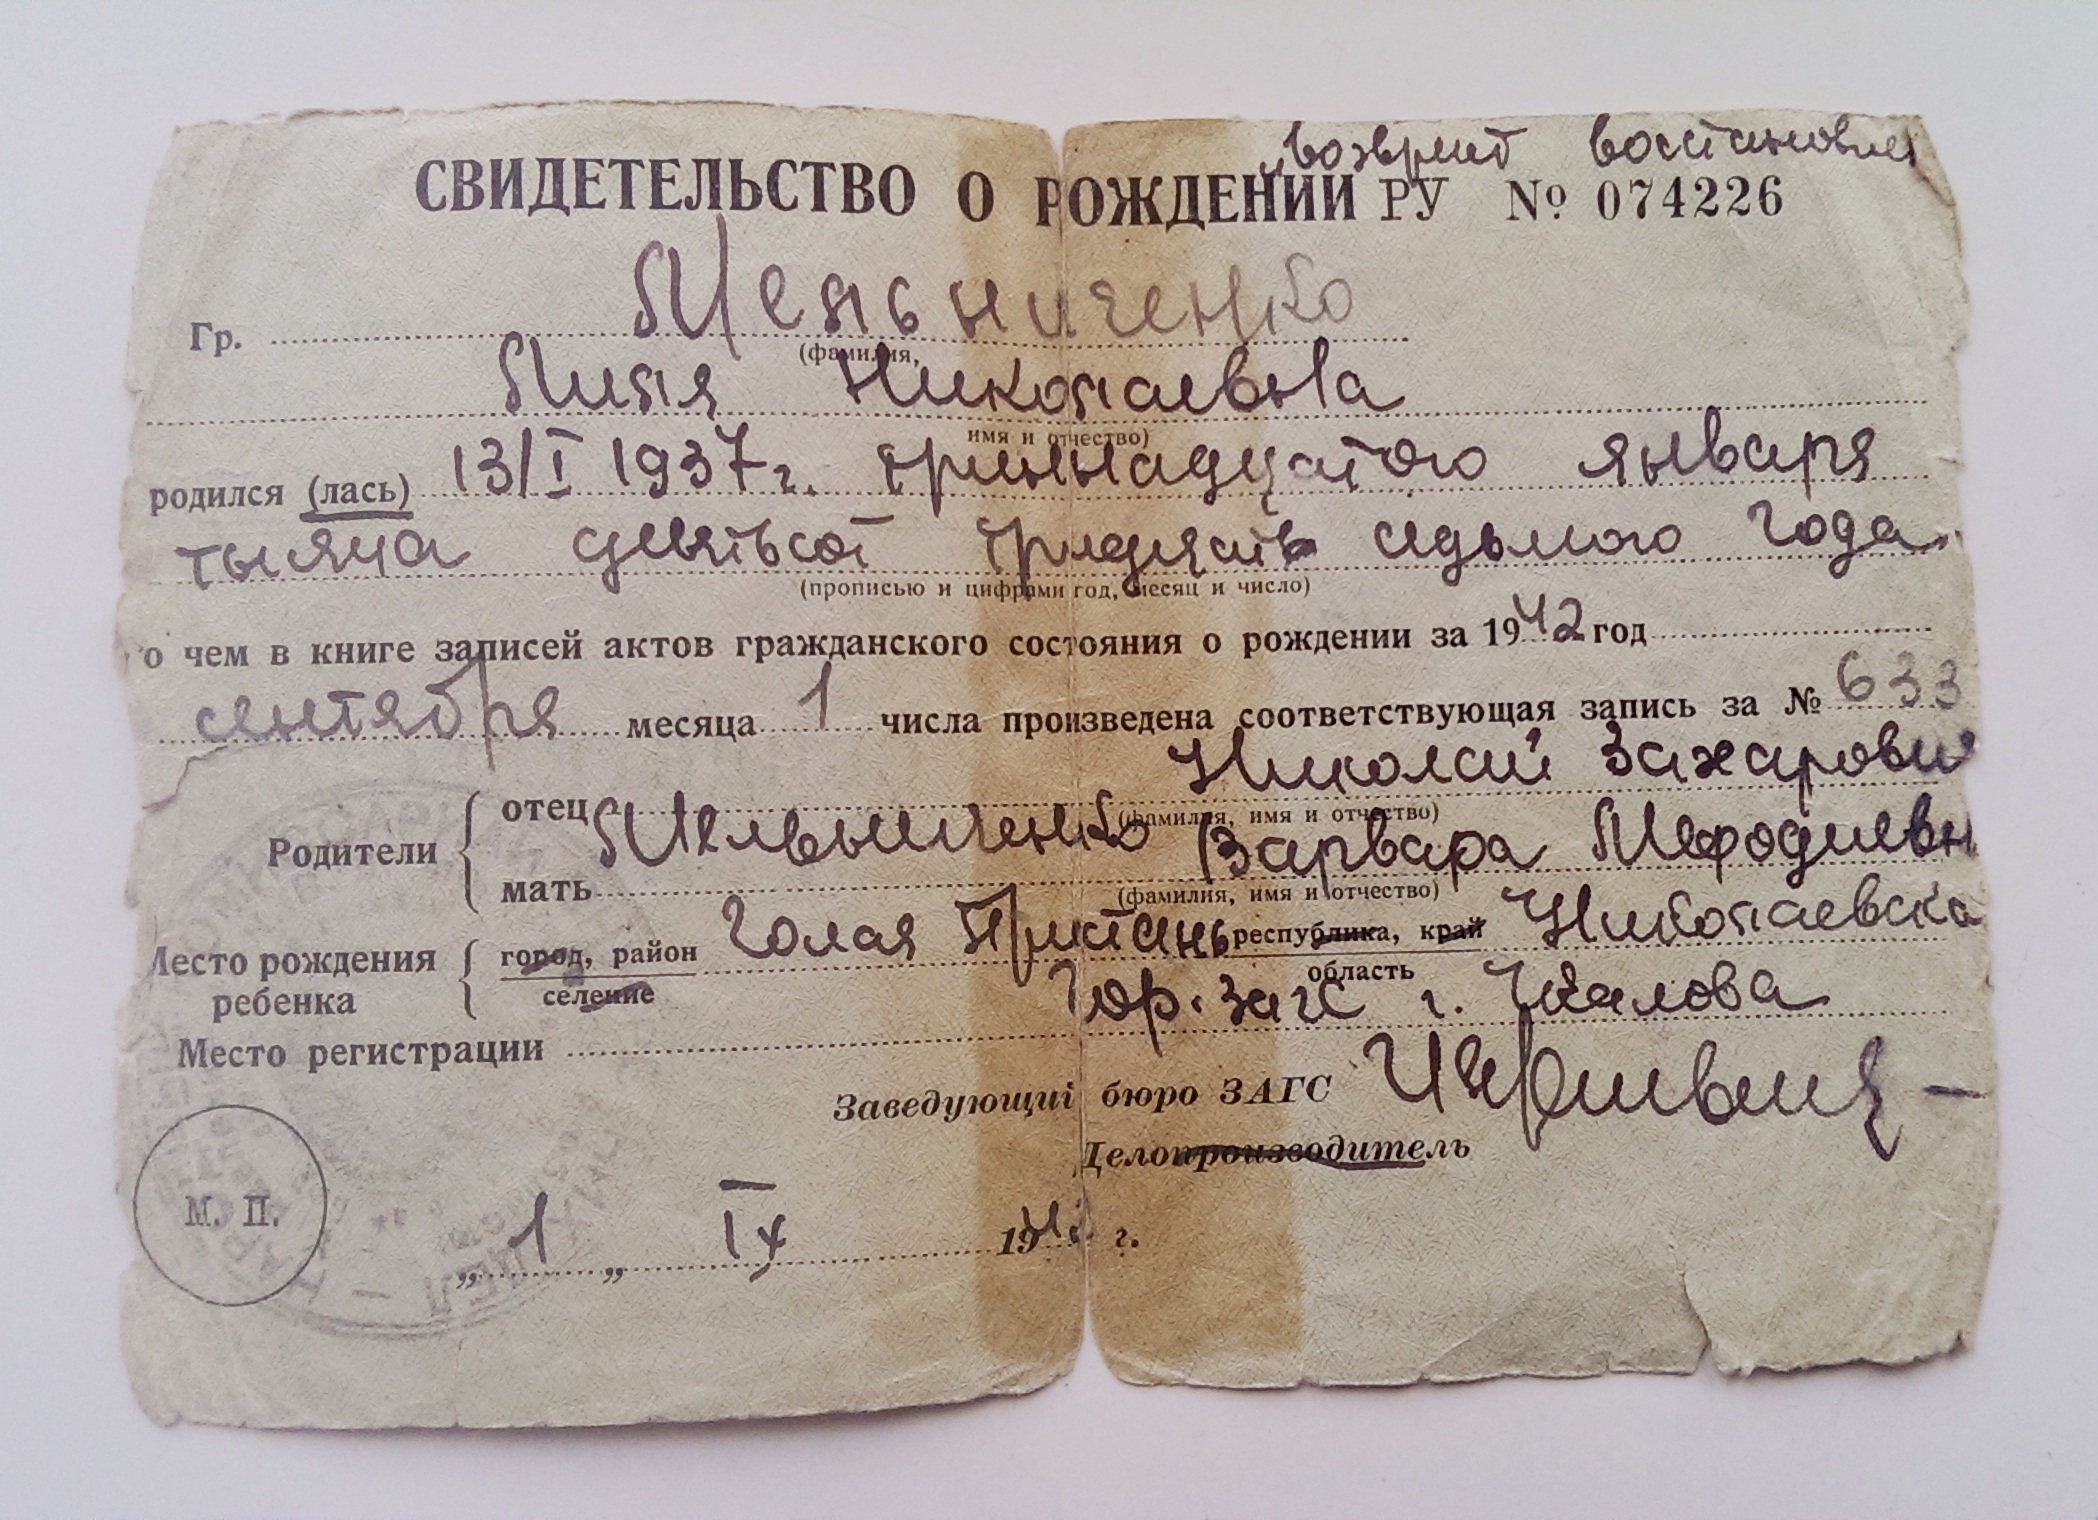 возврат восстановлен
СВИДЕТЕЛЬСТВО О РОЖДЕНИИ РУ № 074226
Гр. Мельниченко
(фамилия,
Лиля Николаевна
имя и отчество)
родился (лась) 13/I 1937 г. тринадцатого января
тысяча девятьсот тридцать седьмого года
(прописью и цифрами год, месяц и число)
о чем в книге записей актов гражданского состояния о рождении за 1942 год
сентября месяца 1 числа произведена соответствующая запись за № 633
Николай Захарович
Родители
отец Мельниченко
(фамилия, имя и отчество)
Варвара Мефодиевн
мать
(фамилия, имя и отчество)
Место рождения ребенка город, район селение Голая Пристань республика, край область Николаевска
Место регистрации Гор. загс г. Чкалова
Заведующий бюро ЗАГС
Делопроизводитель
М. П.
„1„ IX 1942 г.